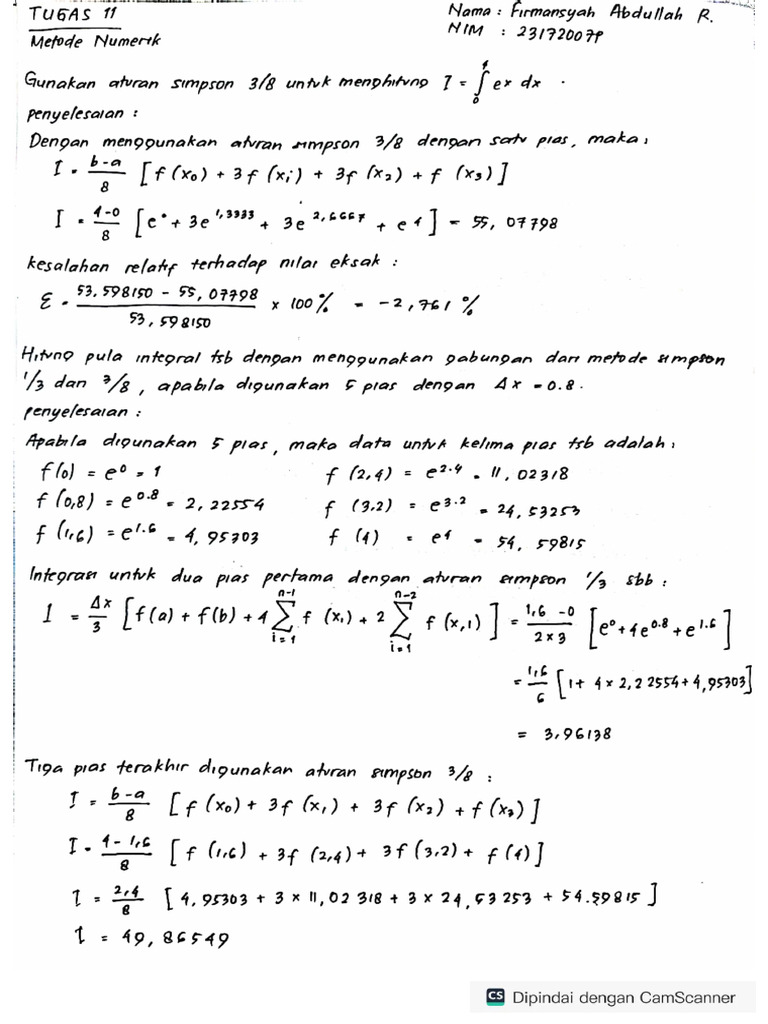 TUGAS 11
Metode Numerik
Nama : Firmansyah Abdullah R.
NIM : 23172007P
Gunakan aturan simpson 3/8 untuk menghitung I = ∫₀⁴ eˣ dx .
penyelesaian :
Dengan menggunakan aturan simpson 3/8 dengan satu pias, maka :
I = (b-a)/8 [f (x₀) + 3f (xᵢ) + 3f (x₂) + f (x₃)]
I = (4-0)/8 [e⁰ + 3e^1,3333 + 3e^2,6667 + e⁴] = 55, 07798
kesalahan relatif terhadap nilai eksak :
ε = (53,598150 - 55,07798)/(53,598150) x 100 % = -2,761 %
Hitung pula integral tsb dengan menggunakan gabungan dari metode simpson
1/3 dan 3/8, apabila digunakan 5 pias dengan Δx = 0.8.
penyelesaian :
Apabila digunakan 5 pias, maka data untuk kelima pias tsb adalah :
f(0) = e⁰ = 1 f (2,4) = e^2.4 = 11, 02318
f (0,8) = e^0.8 = 2, 22554 f (3,2) = e^3.2 = 24, 53253
f (1,6) = e^1.6 = 4, 95303 f (4) = e⁴ = 54, 59815
Integrasi untuk dua pias pertama dengan aturan simpson 1/3 sbb :
I = Δx/3 [f(a) + f(b) + 4 Σ_{i=1}^{n-1} f (x,) + 2 Σ_{i=1}^{n-2} f (x,1)] = (1,6 -0)/(2x3) [e⁰ + 4e^0.8 + e^1.6]
= 1,6/6 [1 + 4 x 2,22554 + 4,95303]
= 3,96138
Tiga pias terakhir digunakan aturan simpson 3/8 :
I = (b-a)/8 [f (x₀) + 3f (x₁) + 3f (x₂) + f (x₃)]
I = (4-1,6)/8 [f (1,6) + 3f (2,4) + 3f (3,2) + f (4)]
I = 2,4/8 [4,95303 + 3 x 11,02318 + 3 x 24,53253 + 54.59815]
I = 49,86549
CS Dipindai dengan CamScanner